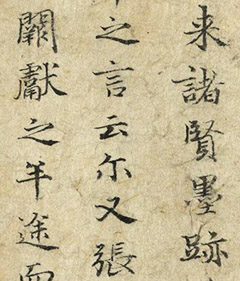 来諸賢墨跡
之言云尓又張
闕獻之年途而